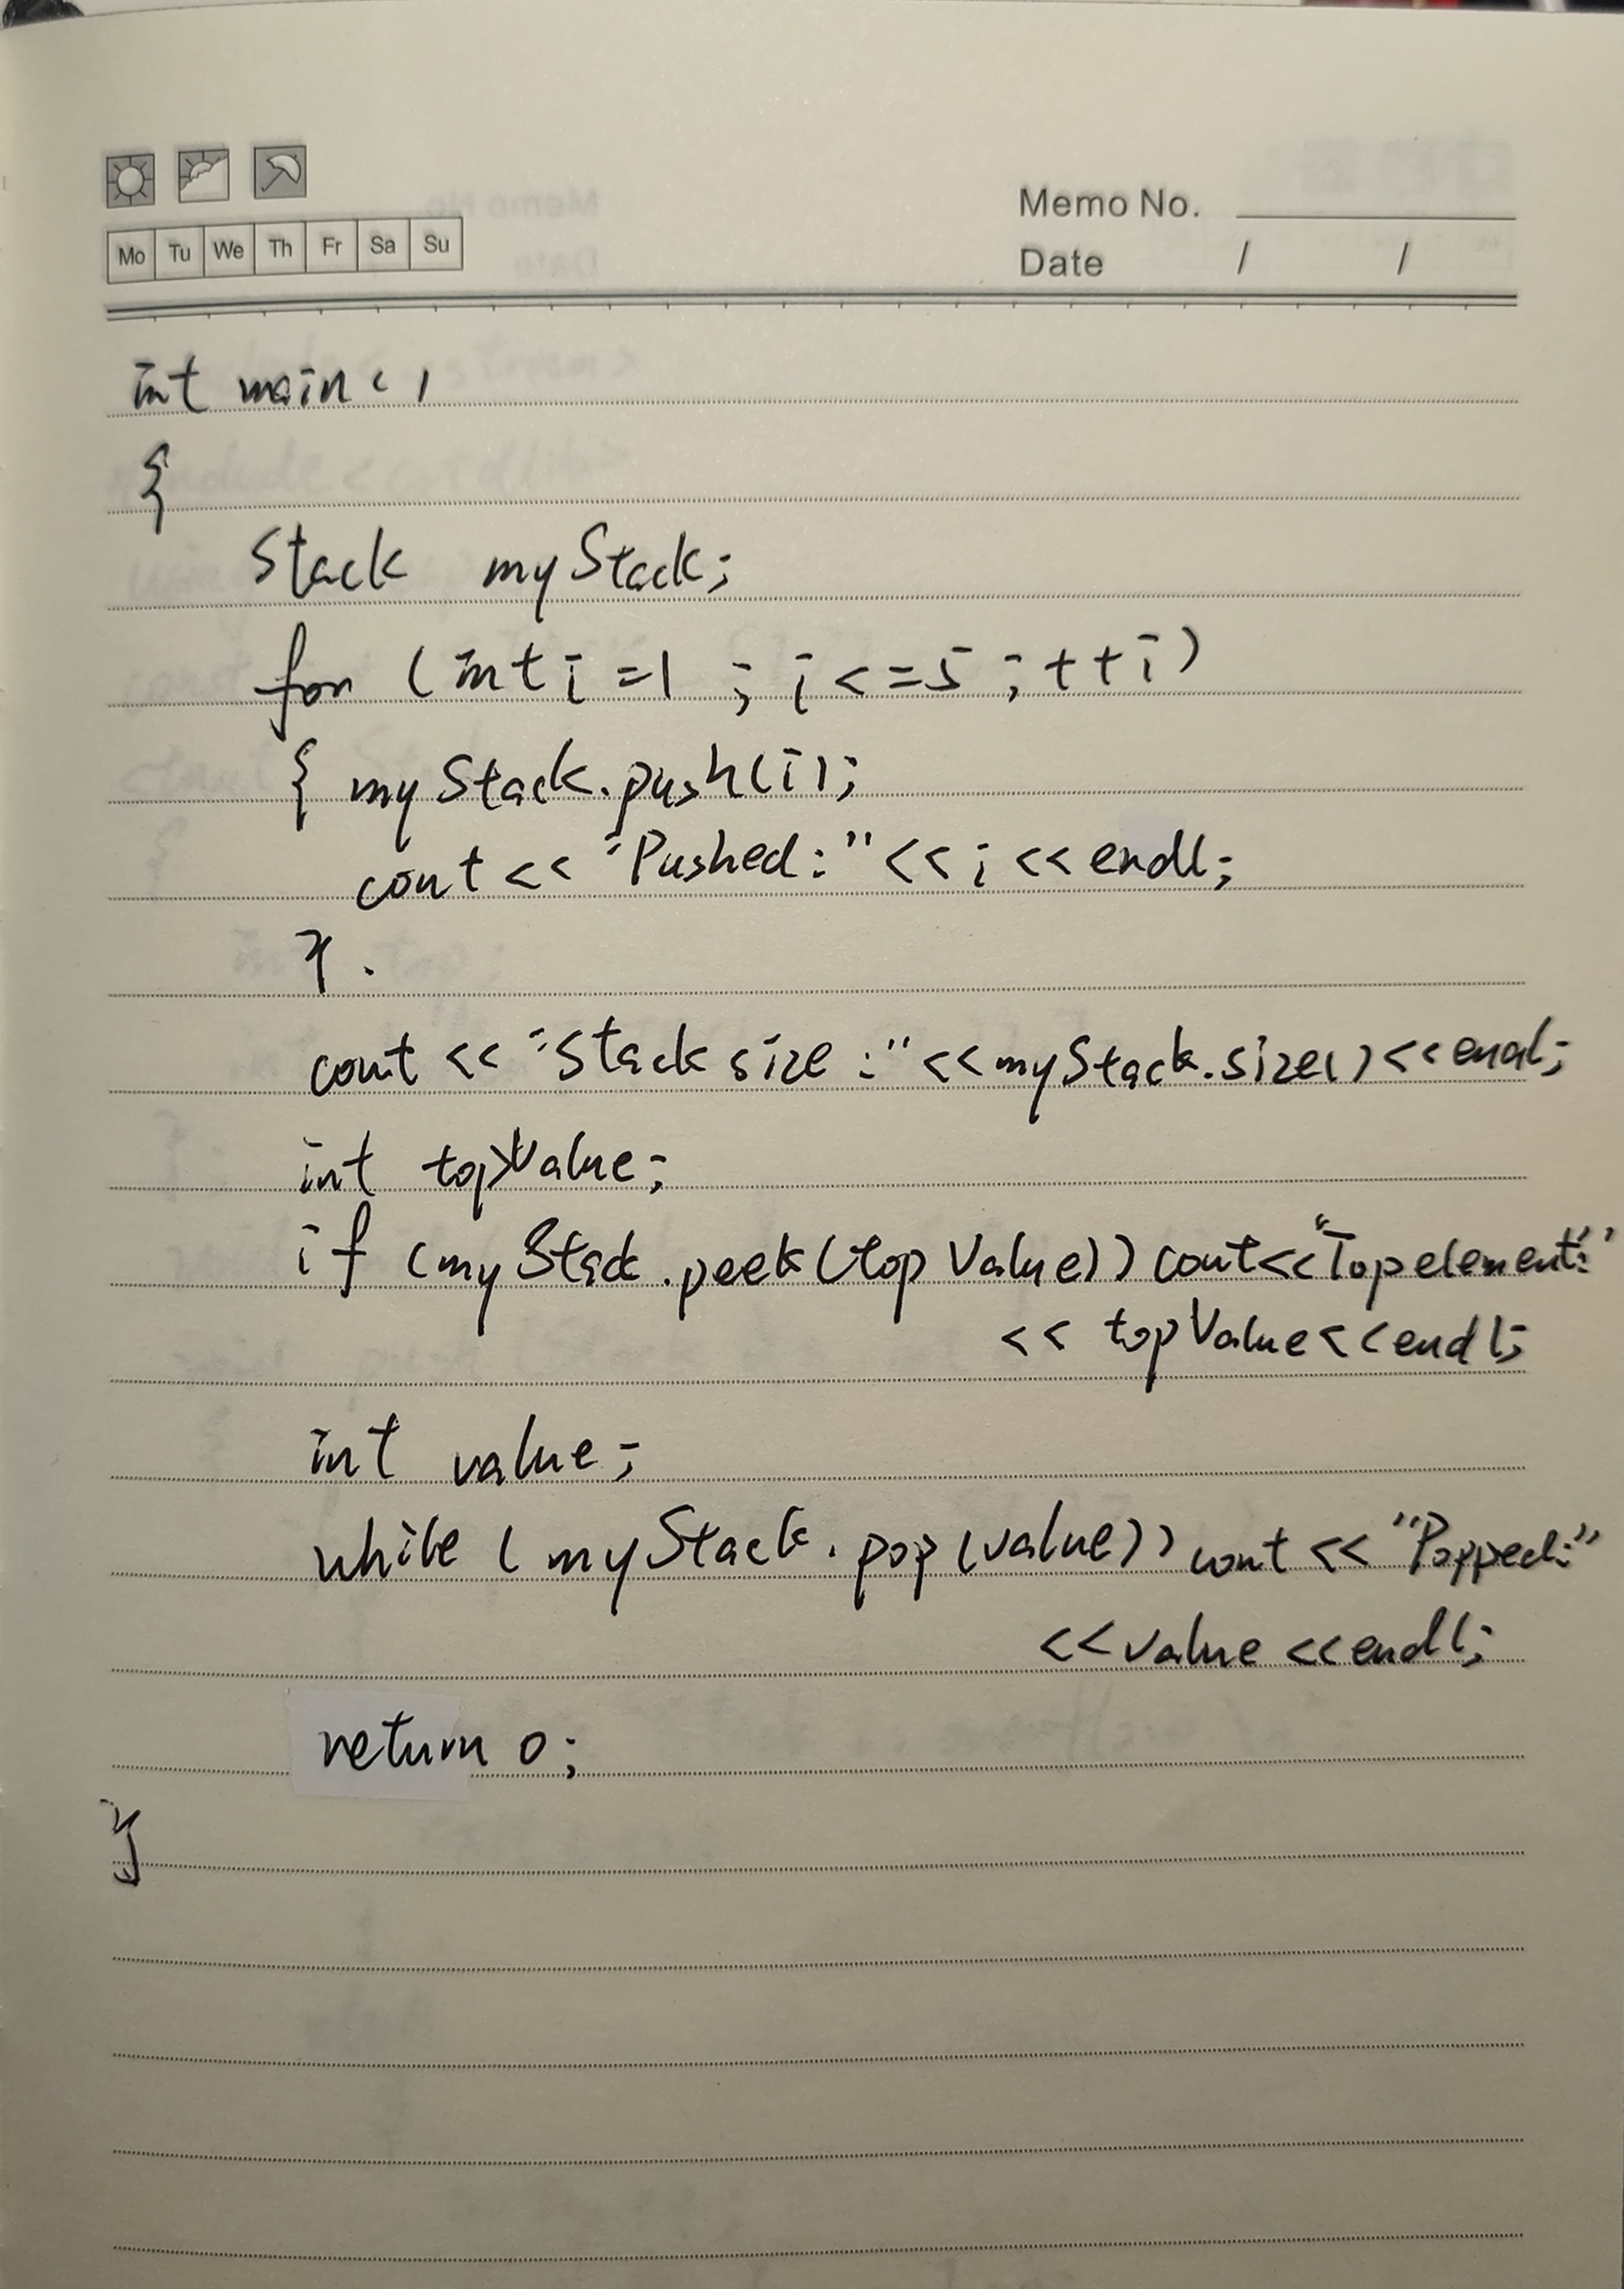 Mo Tu We Th Fr Sa Su
Memo No.
Date / /
int main()
{
Stack myStack;
for (int i=1 ; i<=5 ; ++i)
{ myStack.push(i);
cout << "Pushed:" << i << endl;
}.
cout << "Stack size :" << myStack.size() << endl;
int topValue;
if (myStack.peek(topValue)) cout<<"Top element:"
<< topValue<<endl;
int value;
while (myStack.pop(value)) cout << "Popped:"
<<value <<endl;
return 0;
}